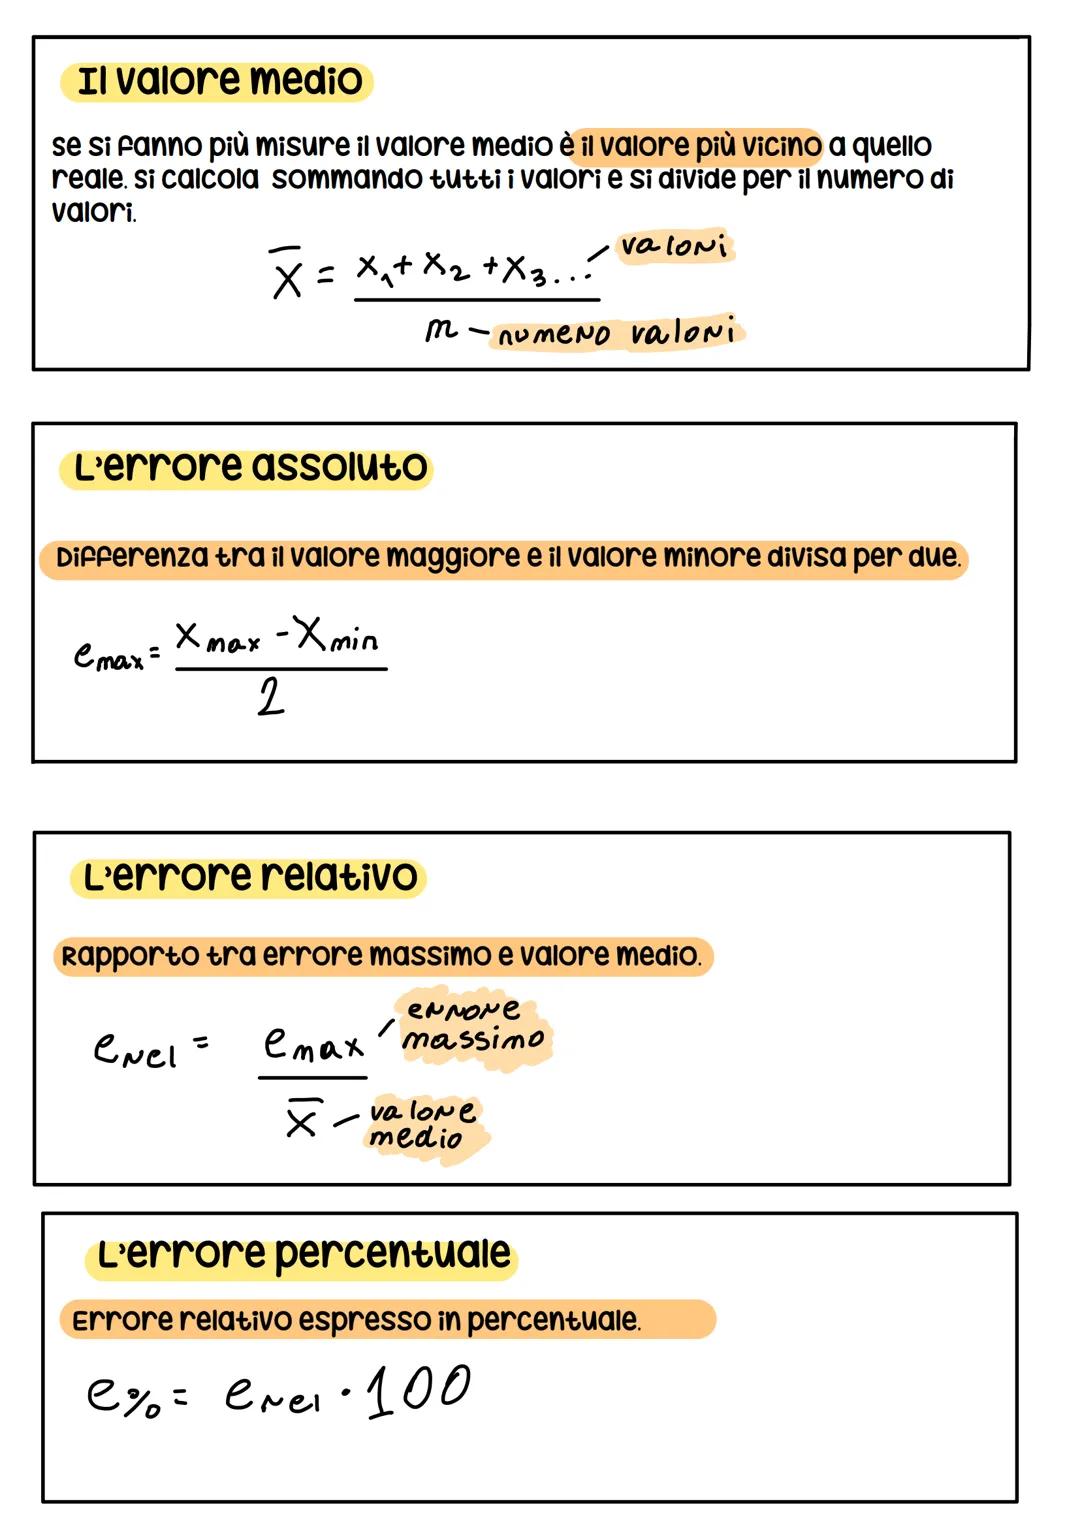 Il valore medio
se si fanno più misure il valore medio è il valore più vicino a quello
reale. si calcola sommando tutti i valori e si divide per il numero di
valori.
x̄ = x₁+x₂+x₃... valori
n numero valori
L'errore assoluto
Differenza tra il valore maggiore e il valore minore divisa per due.
e max = x max - x min
2
L'errore relativo
Rapporto tra errore massimo e valore medio.
errore
e rel = e max massimo
x̄ valore
medio
L'errore percentuale
Errore relativo espresso in percentuale.
e% = e rel · 100